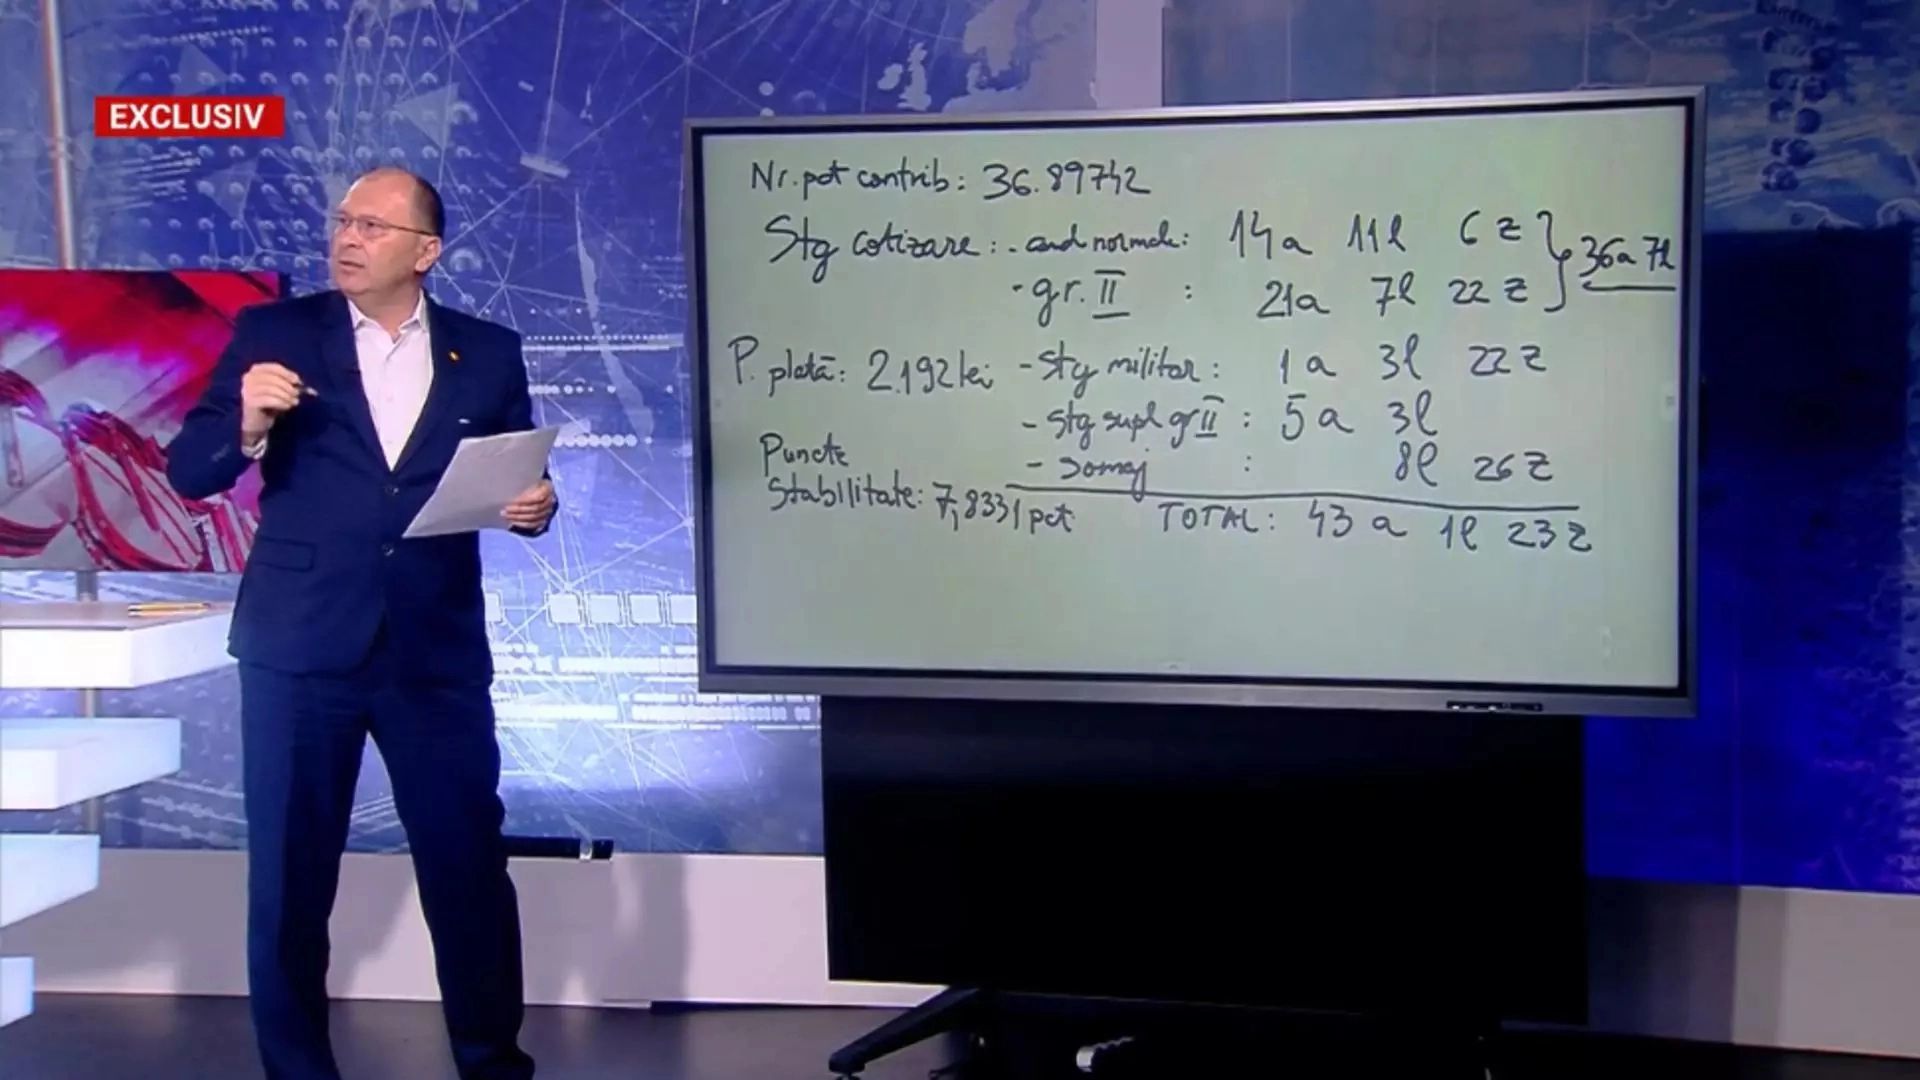 EXCLUSIV
Nr. pct contrib: 36.89742
Stg cotizare: - cond normale: 14a 11l 6z } 36a 7l
- gr. II : 21a 7l 22z
P. plată: 2.192 lei - Stg militar: 1a 3l 22z
- Stg supl gr II : 5a 3l
Puncte - somaj : 8l 26z
Stabilitate: 7,8331 pct TOTAL: 43a 1l 23z